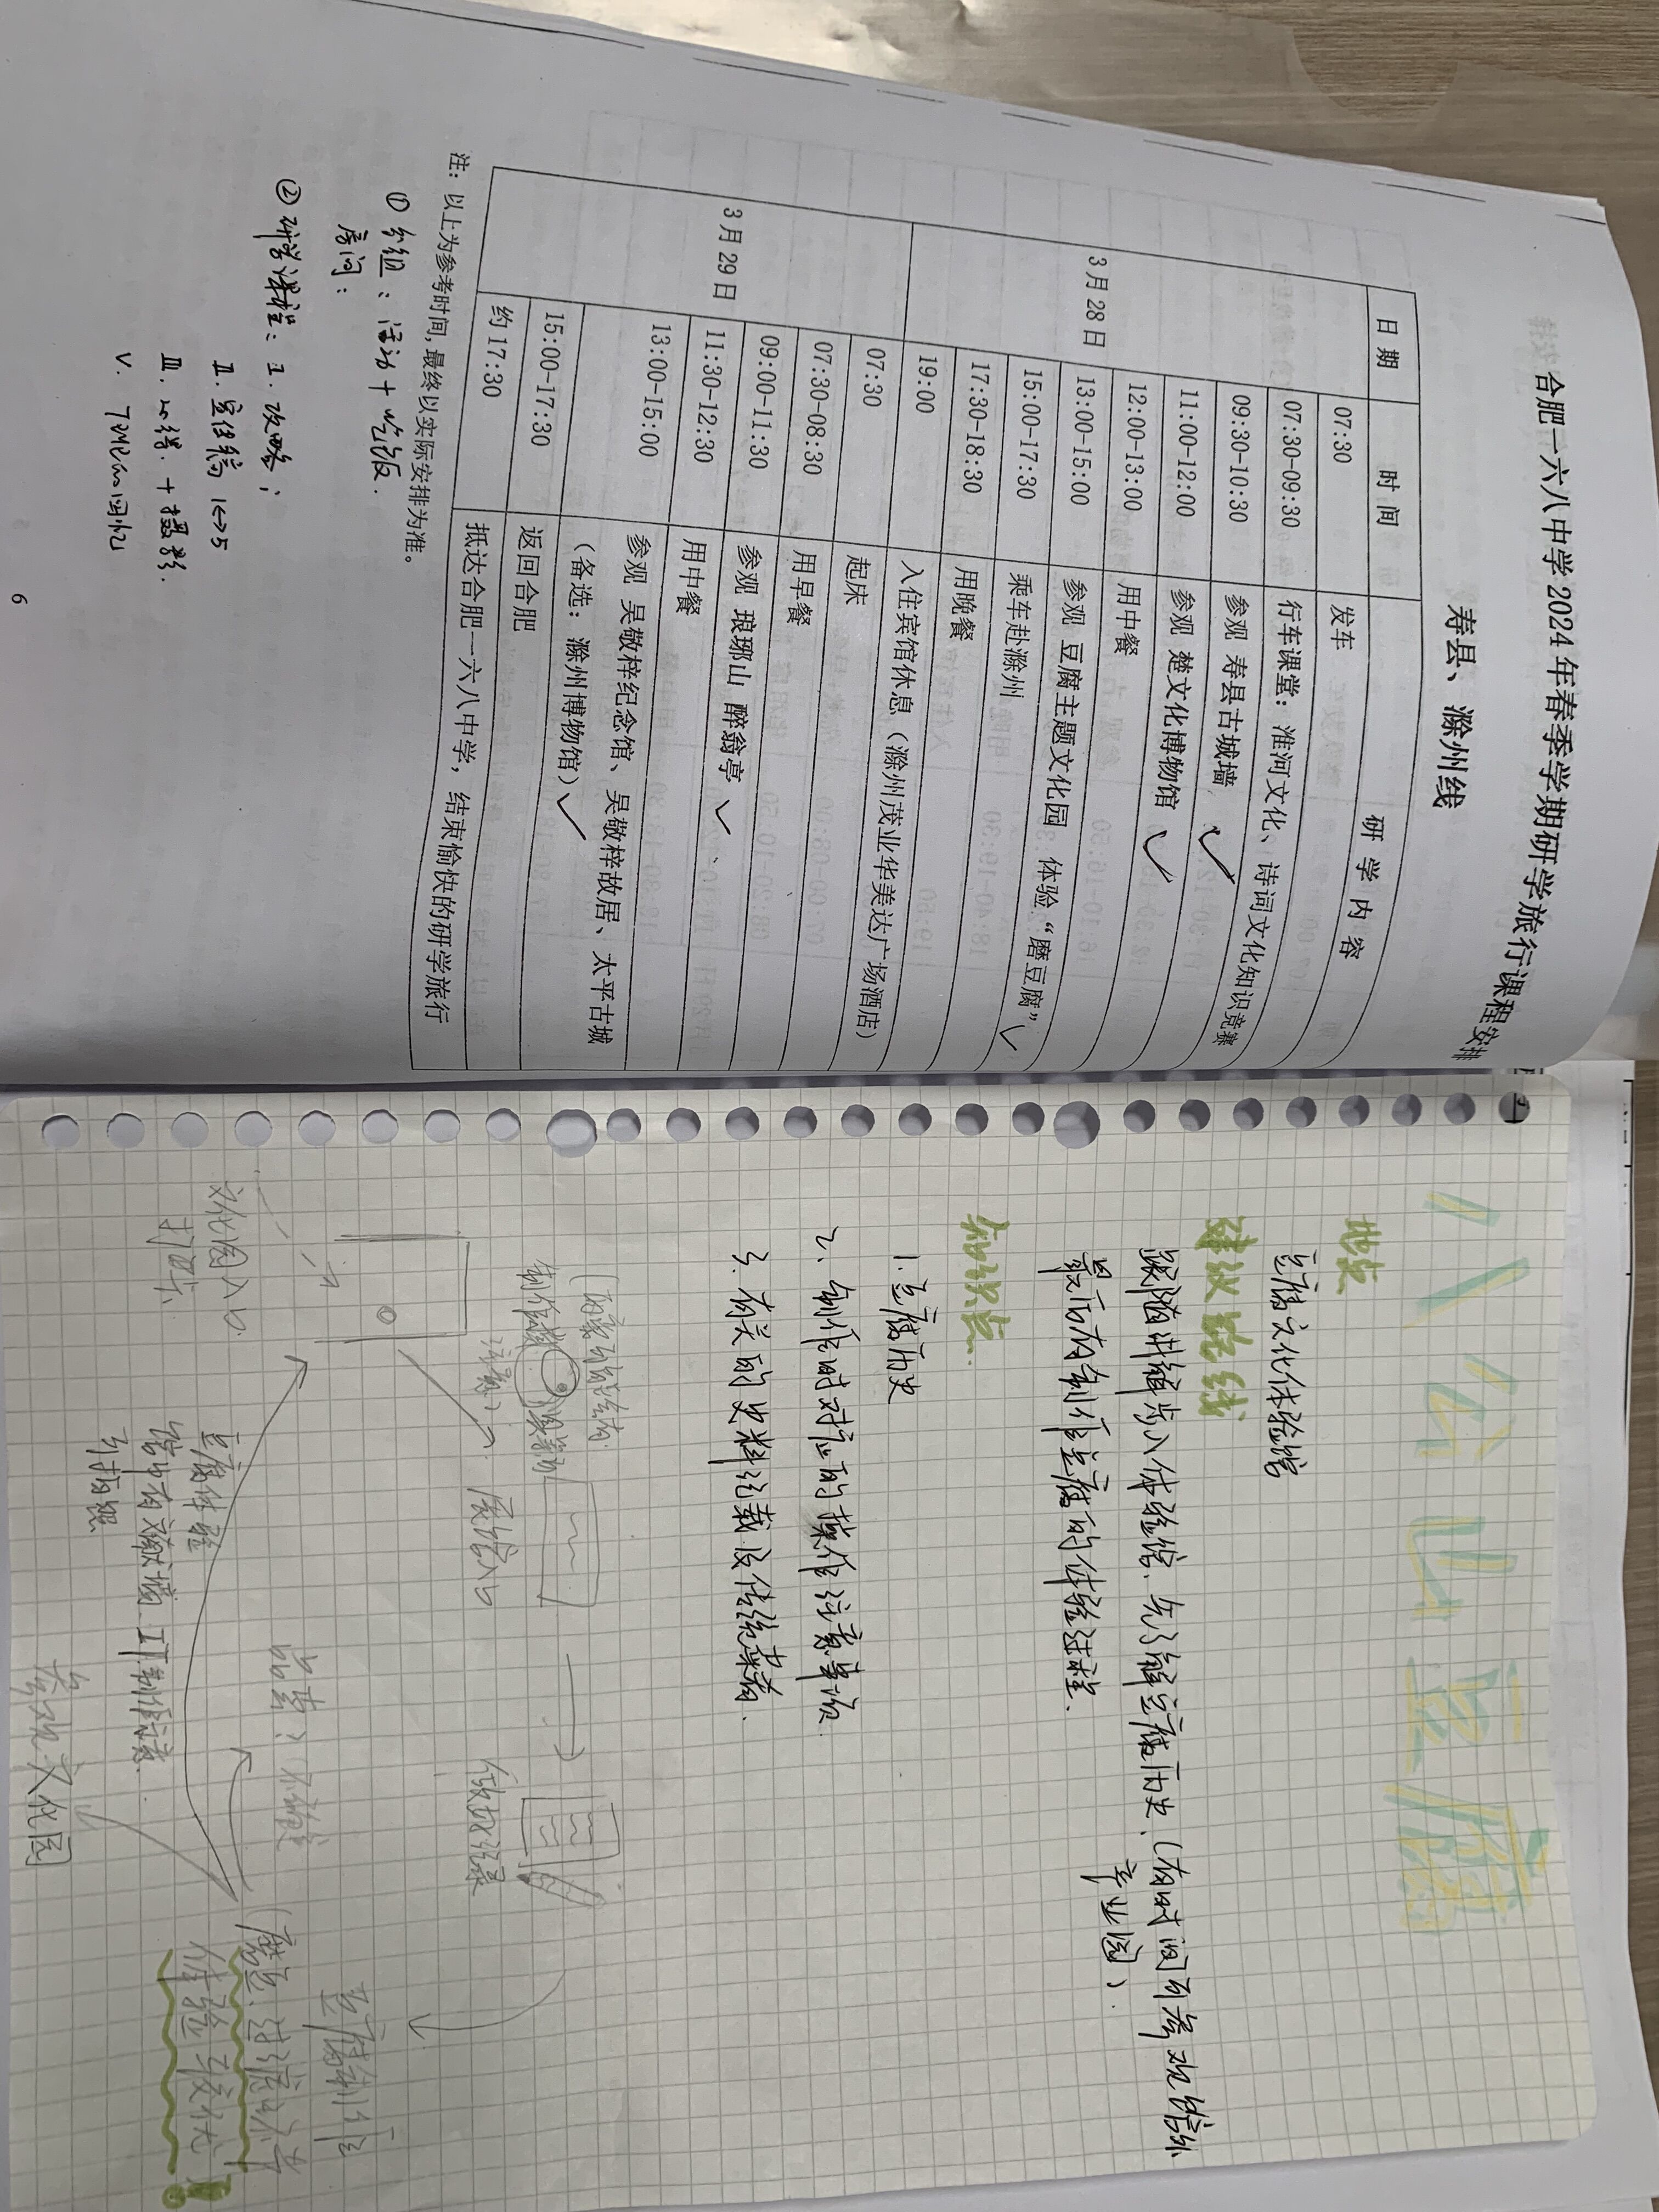 合肥一六八中学2024年春季学期研学旅行课程安排
寿县、滁州线
日期 时间 研学内容
3月28日
07:30 发车
07:30-09:30 行车课堂：淮河文化、诗词文化知识竞赛
09:30-10:30 参观 寿县古城墙
11:00-12:00 参观 楚文化博物馆
12:00-13:00 用中餐
13:00-15:00 参观 豆腐主题文化园 体验“磨豆腐”
15:00-17:30 乘车赴滁州
17:30-18:30 用晚餐
19:00 入住宾馆休息（滁州茂业华美达广场酒店）
3月29日
07:30 起床
07:30-08:30 用早餐
09:00-11:30 参观 琅琊山 醉翁亭
11:30-12:30 用中餐
13:00-15:00 参观 吴敬梓纪念馆、吴敬梓故居、太平古城
（备选：滁州博物馆）
15:00-17:30 返回合肥
约17:30 抵达合肥一六八中学，结束愉快的研学旅行
注：以上为参考时间，最终以实际安排为准。
① 分组：活动+吃饭.
房间：
② 研学课程：I. 攻略；
II. 宣传稿 1↔5
III. 心得.+摄影.
V. 了现的回忆
6
八公山豆腐
地点
豆腐文化体验馆
建议路线
跟随讲解步入体验馆，先了解豆腐历史、（有时间可参观馆外
产业园）.
最后有制作豆腐的体验过程.
知识点.
1.豆腐历史
2、制作时对应的操作注意事项
3. 有关的史料记载及传统菜肴.
展馆入口
做好记录
豆腐制作
文化园入口
打卡
豆腐体验
馆中有
可拍照
品尝？
体验 较优！
参观文化园